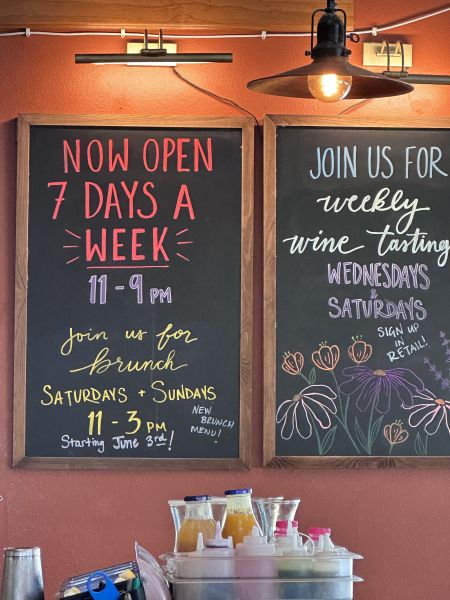 NOW OPEN
7 DAYS A
WEEK
11-9 PM
Join us for
brunch
SATURDAYS + SUNDAYS
11-3 PM
Starting June 3rd!
NEW
BRUNCH
MENU!
JOIN US FOR
weekly
wine tasting
WEDNESDAYS
&
SATURDAYS
SIGN UP
IN
RETAIL!